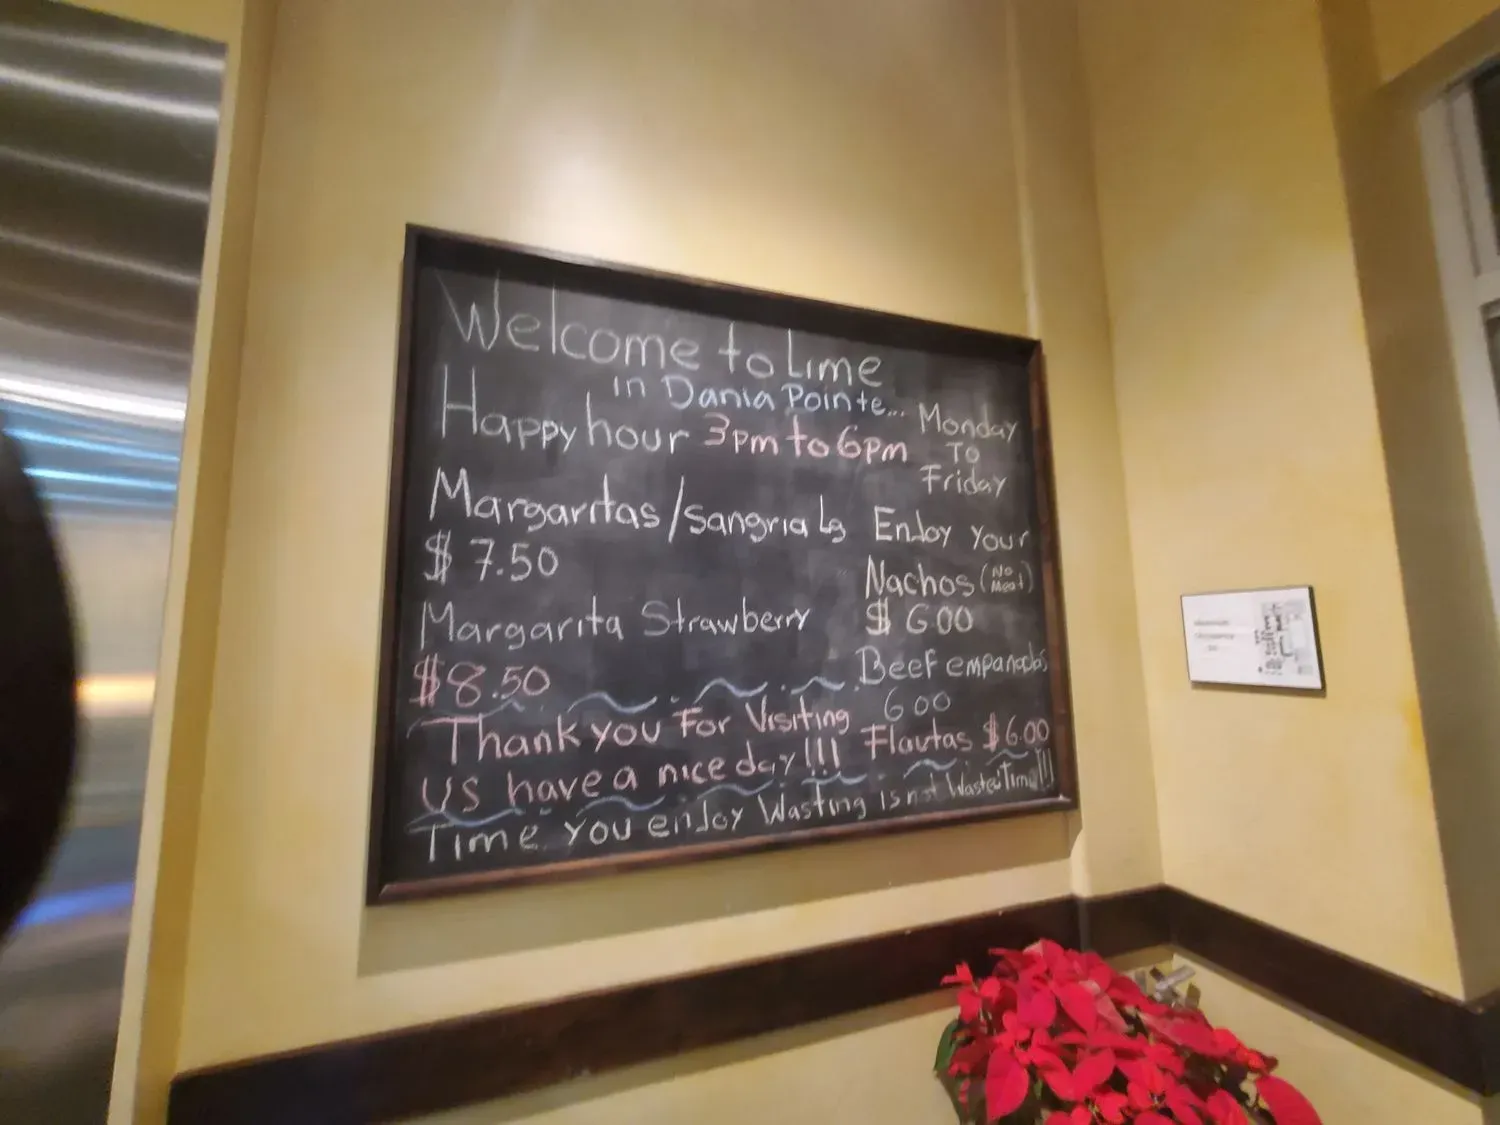 Welcome to Lime
in Dania Pointe...
Happy hour 3pm to 6pm
Monday
To
Friday
Margaritas/sangria Lg
$ 7.50
Margarita Strawberry
$8.50
Enjoy your
Nachos (No Meat)
$ 6.00
Beef empanadas
6.00
Flautas $6.00
Thank you For Visiting
us have a nice day!!!
Time you enjoy Wasting is not Wasted Time!!!